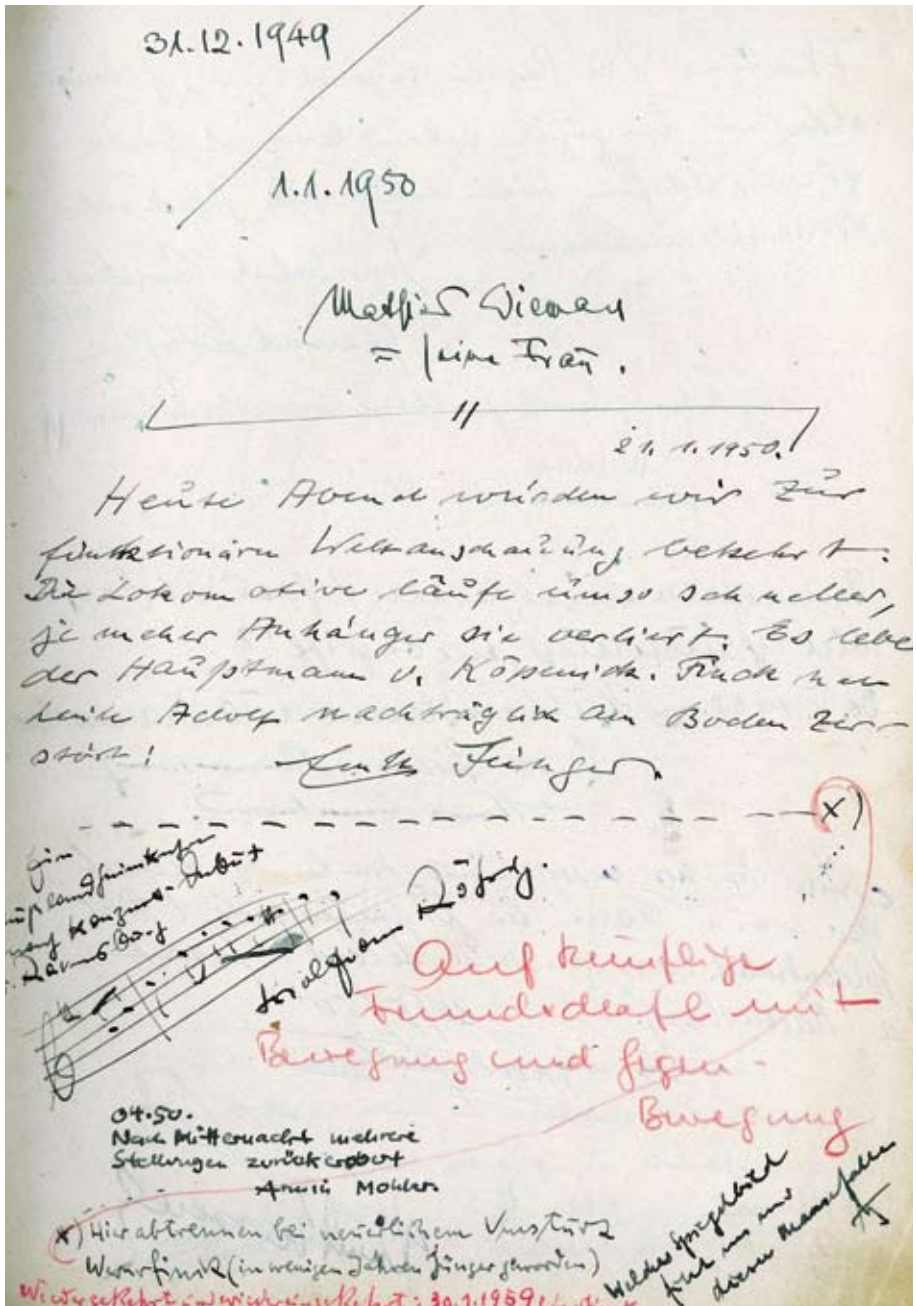 31.12.1949
1.1.1950
Mathias Wieman
= seine Frau.
21.1.1950.
Heute Abend wurden wir zur
funktionären Weltanschauung bekehrt.
Die Lokomotive läuft umso schneller,
je mehr Anhänger sie verliert. Es lebe
der Hauptmann v. Köpenick. Finck
Adolf nachträglich am Boden zer-
stört!
Ernst Jünger.
x)
Ein
Auf künftige
Freundschaft mit
Bewegung und Gegen-
Bewegung
04.50.
Nach Mitternacht mehrere
Stellungen zurückerobert
Armin Mohler
x) Hier abtrennen bei neuerlichem Umsturz
Werner Finck (in wenigen Jahren Jünger geworden)
Welches Spiegelbild
Wiedergekehrt und wieder eingekehrt: 30.1.1959!